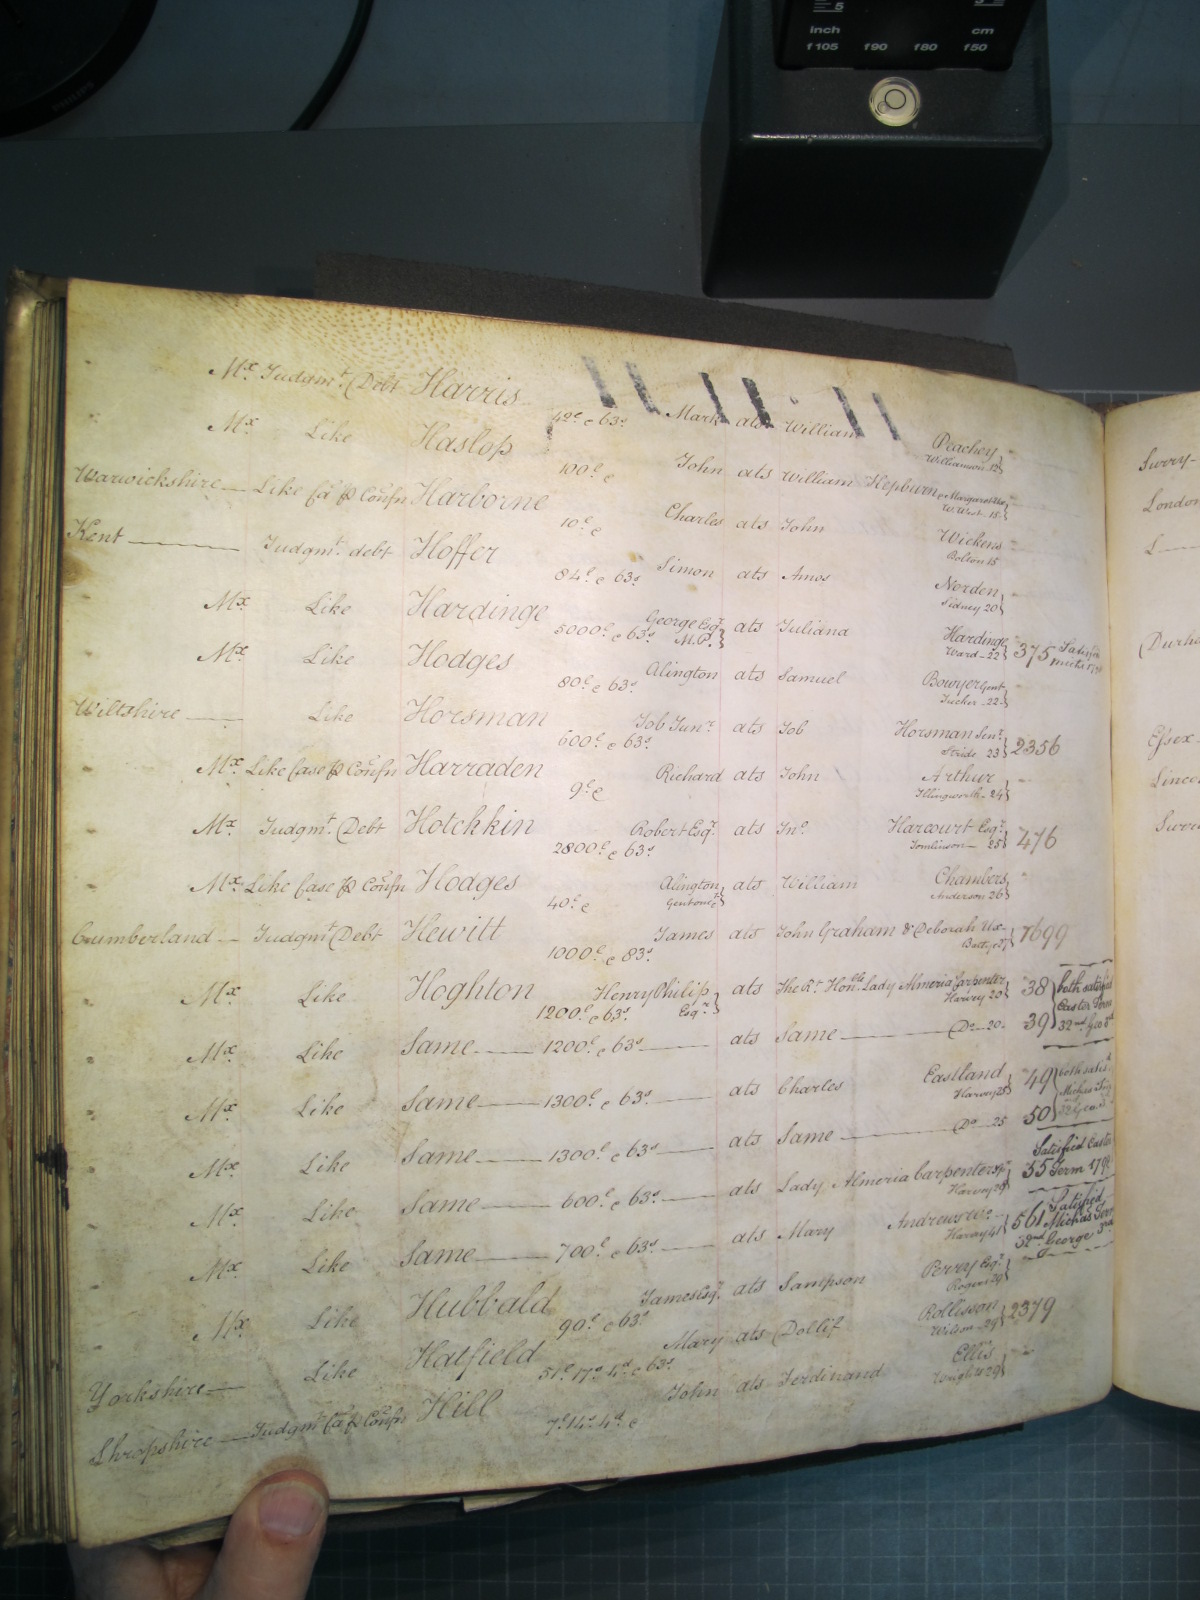 5
inch cm
f105 f90 f80 f50
PHILIPS
Mx Judgmt. Debt Harris 42£ e 63s Mark ats William Peachey Williamson 12
Mx Like Haslop 100£ e John ats William Hepburn & Margaret Ux W. West 15
Warwickshire Like Ca p Confn Harborne 10£ e Charles ats John Wickens Bolton 15
Kent Judgmt. debt Hoffer 84£ e 63s Simon ats Amos Norden Sidney 20
Mx Like Hardinge 5000£ e 63s George Esqr. M.P. ats Juliana Hardinge Ward 22 375 Satisfd
Mx Like Hodges 80£ e 63s Alington ats Samuel Bowyer Gent Tucker 22
Wiltshire Like Horsman 600£ e 63s Job Junr ats Job Horsman Senr. Stride 23 2356
Mx Like Case p Confn Harraden 9£ e Richard ats John Arthur Illingworth 24
Mx Judgmt. Debt Hotchkin 2800£ e 63s Robert Esqr. ats Jno. Harcourt Esqr. Tomlinson 25 476
Mx Like Case p Confn Hodges 40£ e Alington Gent one &c ats William Chambers Anderson 26
Cumberland Judgmt Debt Hewitt 1000£ e 83s James ats John Graham & Deborah Ux 7699
Mx Like Hoghton 1200£ e 63s Henry Philip Esqr. ats The Rt. Honble Lady Almeria Carpenter Harvey 20 38 both satisfied
Mx Like Same 1200£ e 63s ats Same Do 20 39 Easter Term 32nd Geo 3d
Mx Like Same 1300£ e 63s ats Charles Eastland Harvey 25 49 both satisd
Mx Like Same 1300£ e 63s ats Same Do 25 50
Mx Like Same 600£ e 63s ats Lady Almeria Carpenter Spr Harvey 29 55 Satisfied Easter Term
Mx Like Same 700£ e 63s ats Mary Andrews Harvey 41 561 Satisfied Michas Term 32nd George 3rd
Mx Like Hubbald 90£ e 63s James Esqr. ats Sampson Perry Esqr. Rogers 29
Yorkshire Like Hatfield 51£ 17s 4d e 63s Mary ats Dollif Rollisson Wilson 29 2379
Shropshire Judgmt Ca p Confn Hill 7£ 14s 4d e John ats Ferdinand Ellis Wright 29
Surry
London
Essex